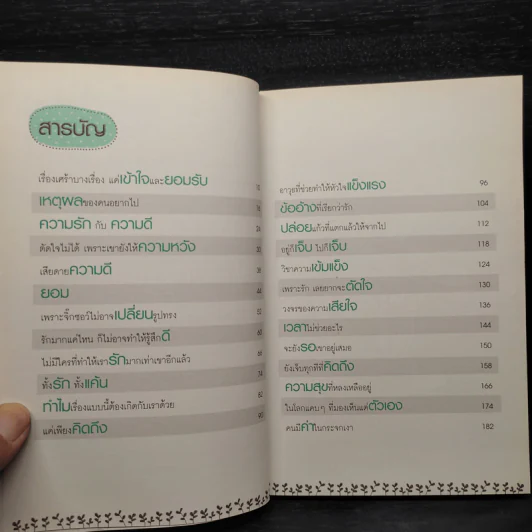 สารบัญ
เรื่องเศร้าบางเรื่อง แค่เข้าใจและยอมรับ
เหตุผลของคนอยากไป
ความรัก กับ ความดี
ตัดใจไม่ได้ เพราะเขายังให้ความหวัง
เสียดายความดี
ยอม
เพราะจิ๊กซอว์ไม่อาจเปลี่ยนรูปทรง 52
รักมากแค่ไหน ก็ไม่อาจทำให้รู้สึกดี 60
ไม่มีใครที่ทำให้เรารักมากเท่าเขาอีกแล้ว 66
ทั้งรัก ทั้งแค้น 74
ทำไมเรื่องแบบนี้ต้องเกิดกับเราด้วย 82
แค่เพียงคิดถึง 90
อาวุธที่ช่วยทำให้หัวใจแข็งแรง 96
ข้ออ้างที่เรียกว่ารัก 104
ปล่อยแก้วที่แตกแล้วให้จากไป 112
อยู่ก็เจ็บ ไปก็เจ็บ 118
วิชาความเข้มแข็ง 124
เพราะรัก เลยยากจะตัดใจ 130
วงจรของความเสียใจ 136
เวลาไม่ช่วยอะไร 144
จะยังรอเขาอยู่เสมอ 150
ยังเจ็บทุกทีที่คิดถึง 158
ความสุขที่หลงเหลืออยู่ 166
ในโลกแคบๆ ที่มองเห็นแค่ตัวเอง 174
คนมีค่าในกระจกเงา 182